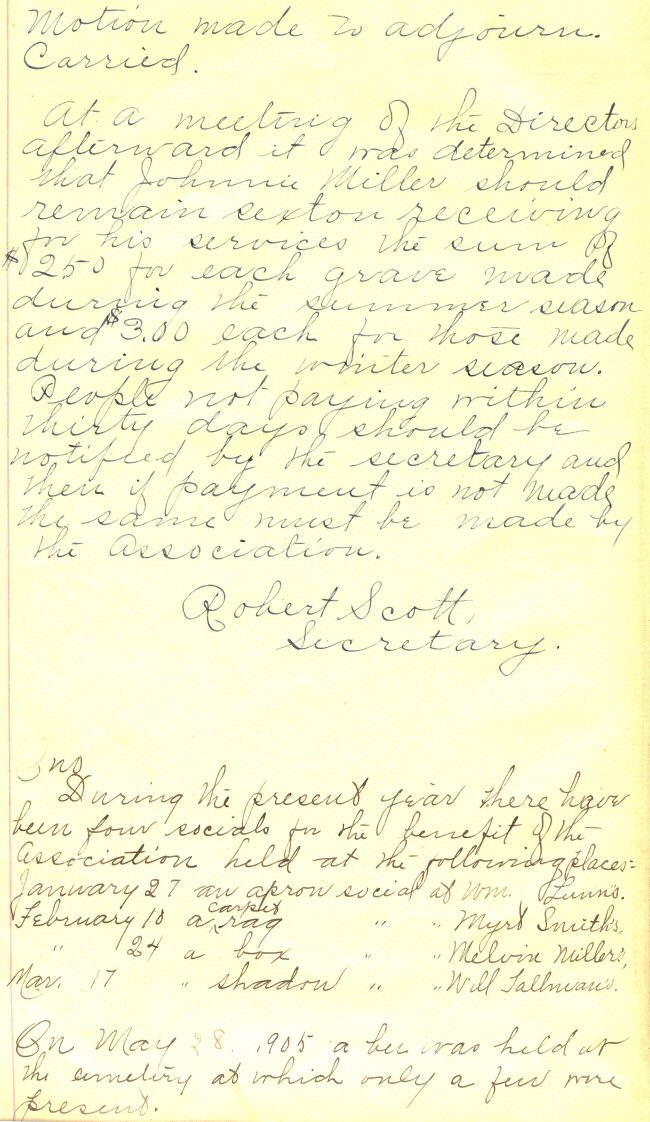 Motion made to adjourn.
Carried.
At a meeting of the Directors
afterward it was determined
that Johnnie Miller should
remain sexton receiving
for his services the sum of
$250 for each grave made
during the summer season
and $3.00 each for those made
during the winter season.
People not paying within
thirty days should be
notified by the secretary and
then if payment is not made
the same must be made by
the Association.
Robert Scott,
Secretary.
During the present year there have
been four socials for the benefit of the
Association held at the following places:-
January 27 an apron social at Wm. Lunn's.
February 10 a carpet rag " " Myrt Smith's.
" 24 a box " " Melvin Miller's,
Mar. 17 " shadow " " Will Tallman's.
On May 28. 1905 a bee was held at
the cemetery at which only a few were
present.